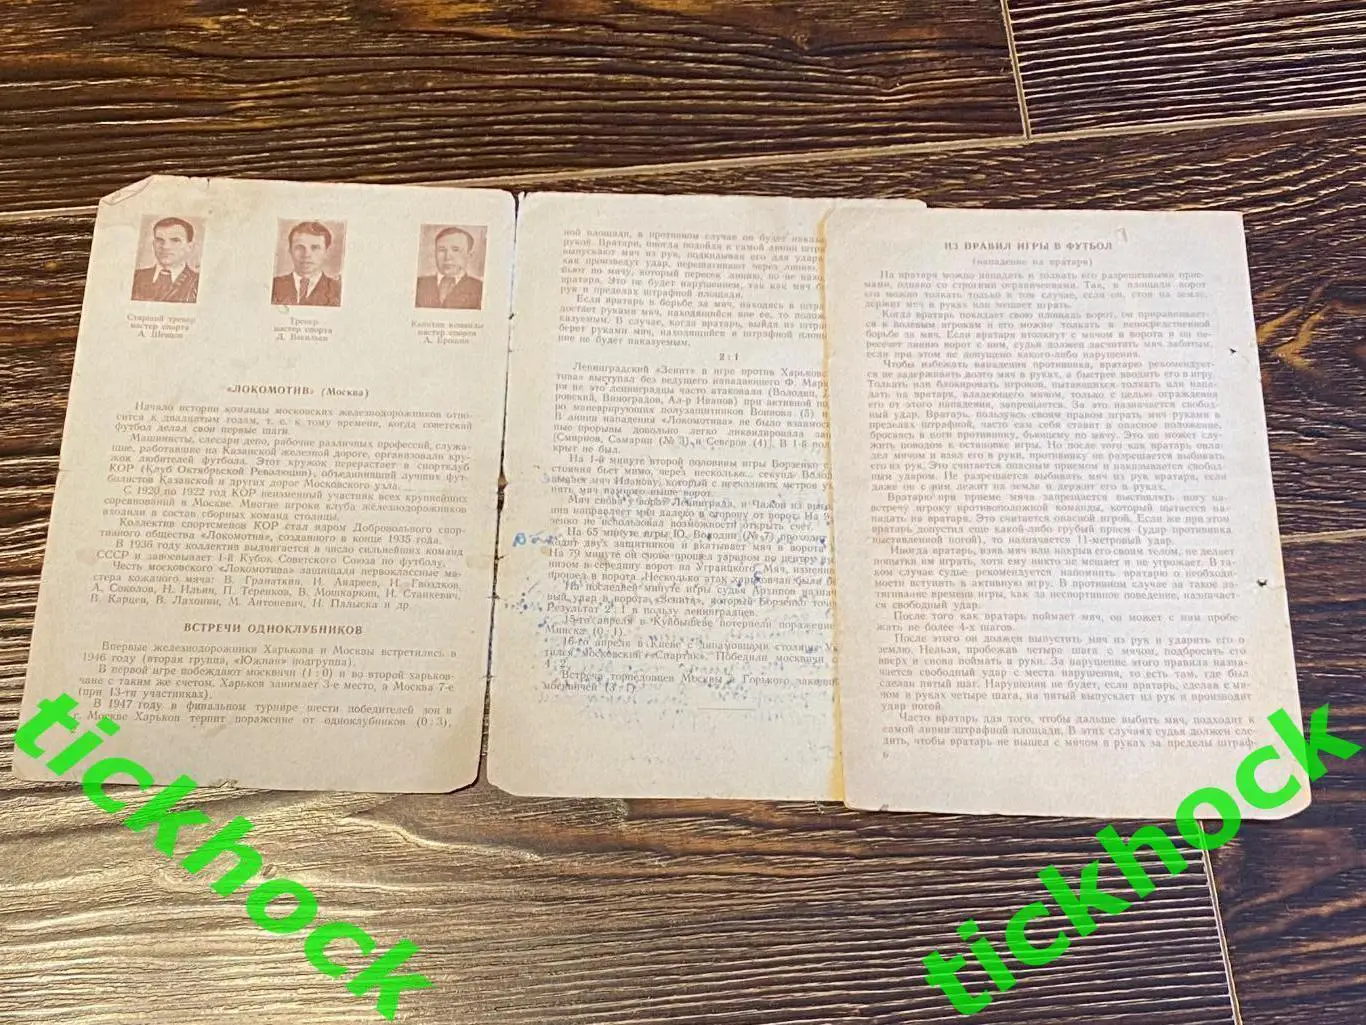 Старший тренер
мастер спорта
Тренер
мастер спорта
Д. Васильев
Капитан команды
мастер спорта
А. Ерохин
«ЛОКОМОТИВ» (Москва)
Начало истории команды московских железнодорожников отно-
сится к двадцатым годам, т. е. к тому времени, когда советский
футбол делал свои первые шаги.
Машинисты, слесари депо, рабочие различных профессий, служа-
щие, работавшие на Казанской железной дороге, организовали кру-
жок любителей футбола. Этот кружок перерастает в спортклуб
КОР (Клуб Октябрьской Революции), объединивший лучших фут-
болистов Казанской и других дорог Московского узла.
С 1920 по 1922 год КОР неизменный участник всех крупнейших
соревнований в Москве. Многие игроки клуба железнодорожников
входили в состав сборных команд столицы.
Коллектив спортсменов КОР стал ядром Добровольного спор-
тивного общества «Локомотив», созданного в конце 1935 года.
В 1936 году коллектив выдвигается в число сильнейших команд
СССР и завоевывает 1-й Кубок Советского Союза по футболу.
Честь московского «Локомотива» защищали первоклассные ма-
стера кожаного мяча: В. Гранаткин, И. Андреев, И. Гвоздков,
А. Соколов, Н. Ильин, П. Теренков, В. Мошкаркин, Н. Станкевич,
В. Карцев, В. Лахонин, М. Антоневич, Н. Палыска и др.
ВСТРЕЧИ ОДНОКЛУБНИКОВ
Впервые железнодорожники Харькова и Москвы встретились в
1946 году (вторая группа, «Южная» подгруппа).
В первой игре побеждают москвичи (1:0) и во второй харьков-
чане с таким же счетом. Харьков занимает 3-е место, а Москва 7-е
(при 13-ти участниках).
В 1947 году в финальном турнире шести победителей зон в
г. Москве Харьков терпит поражение от одноклубников (0:3),
ной площади, в противном случае он будет наказ
рукой. Вратарь, иногда подойдя к самой линии штра
выпускают мяч из рук, подкидывая его для удар
как произведут удар, перешагивают через линию,
бьют по мячу, который пересек линию, но не нахо
вратаря. Это не будет нарушением, так как мяч б
рук в пределах штрафной площади.
Если вратарь в борьбе за мяч, находясь в штра
достает руками мяч, находящийся вне ее, то полож
казуемым. В случае, когда вратарь, выйдя из штра
берет руками мяч, находящийся в штрафной площ
ние не будет наказуемым.
2:1
Ленинградский «Зенит» в игре против Харьковс
тива» выступал без ведущего нападающего Ф. Марк
ря на это ленинградцы часто атаковали (Володин,
ровский, Виноградов, Ал-р Иванов) при активной по
ро маневрирующих полузащитников Воинова (5) и
В линии нападения «Локомотива» не было взаимос
ные прорывы довольно легко ликвидировала защ
(Смирнов, Самарин (№ 3), и Северов (4). В 1-й пол
крыт не был.
На 1-й минуте второй половины игры Борзенко с
стояния бьет мимо, через несколько секунд Волод
мяч Иванову, который с нескольких метров у
мяч намного выше ворот.
Мяч снова у ворот Ленинграда, и Чанов из
направляет мяч далеко в сторону от ворот. На
енко не использовал возможности открыть счет.
На 65 минуте игры Ю. Володин (№ 7) проход
одит двух защитников и вкатывает мяч в ворота
На 79 минуте он снова прошел ударом по центру
низом в середину ворот на Уграицкого. Мяч, измен
прошел в ворота. Несколько атак харьковчан были бе
На последней минуте игры судья Архипов назна
ный удар в ворота «Зенита», который Борзенко точн
Результат 2:1 в пользу ленинградцев.
15-го апреля в Куйбышеве потерпели поражение
Минска (0:1).
16-го апреля в Киеве с динамовцами столицы Ук
тился московский «Спартак». Победили москвичи с
4:2.
Встреча торпедовцев Москвы и Горького законч
москвичей (3:1).
ИЗ ПРАВИЛ ИГРЫ В ФУТБОЛ
(нападение на вратаря)
На вратаря можно нападать и толкать его разрешенными прие-
мами, однако со строгими ограничениями. Так, в площади ворот
его можно толкать только в том случае, если он, стоя на земле,
держит мяч в руках или мешает играть.
Когда вратарь покидает свою площадь ворот, он приравнивает-
ся к полевым игрокам и его можно толкать в непосредственной
борьбе за мяч. Если вратаря втолкнут с мячом в ворота и он пе-
ресечет линию ворот с ним, судья должен засчитать мяч забитым,
если при этом не допущено какого-либо нарушения.
Чтобы избежать нападения противника, вратарю рекомендует-
ся не задерживать долго мяч в руках, а быстрее вводить его в игру.
Толкать или блокировать игроков, пытающихся толкать или напа-
дать на вратаря, владеющего мячом, только с целью ограждения
его от этого нападения, запрещается. За это назначается свобод-
ный удар. Вратарь, пользуясь своим правом играть мяч руками в
пределах штрафной, часто сам себя ставит в опасное положение,
бросаясь в ноги противнику, бьющему по мячу. Это не может слу-
жить поводом к остановке игры. Но после того, как вратарь овла-
дел мячом и взял его в руки, противнику не разрешается выбивать
его из рук. Это считается опасным приемом и наказывается свобод-
ным ударом. Не разрешается выбивать мяч из рук вратаря, если
даже он с ним лежит на земле и держит его в руках.
Вратарю при приеме мяча запрещается выставлять ногу на-
встречу игроку противоположной команды, который пытается на-
падать на вратаря. Это считается опасной игрой. Если же при этом
вратарь допустил еще какой-либо грубый прием (удар противника
выставленной ногой), то назначается 11-метровый удар.
Иногда вратарь, взяв мяч или накрыв его своим телом, не делает
попытки им играть, хотя ему никто не мешает и не угрожает. В та-
ком случае судье рекомендуется напомнить вратарю о необходи-
мости вступить в активную игру. В противном случае за такое за-
тягивание времени игры, как за неспортивное поведение, назначает-
ся свободный удар.
После того как вратарь поймает мяч, он может с ним пробе-
жать не более 4-х шагов.
После этого он должен выпустить мяч из рук и ударить его о
землю. Нельзя, пробежав четыре шага с мячом, подбросить его
вверх и снова поймать в руки. За нарушение этого правила назна-
чается свободный удар с места нарушения, то есть там, где был
сделан пятый шаг. Нарушения не будет, если вратарь, сделав с мя-
чом в руках четыре шага, на пятый выпускает из рук и производит
удар ногой.
Часто вратарь для того, чтобы дальше выбить мяч, подходит к
самой линии штрафной площади. В этих случаях судья должен сле-
дить, чтобы вратарь не вышел с мячом в руках за пределы штраф-
6
tickhock
tickhock